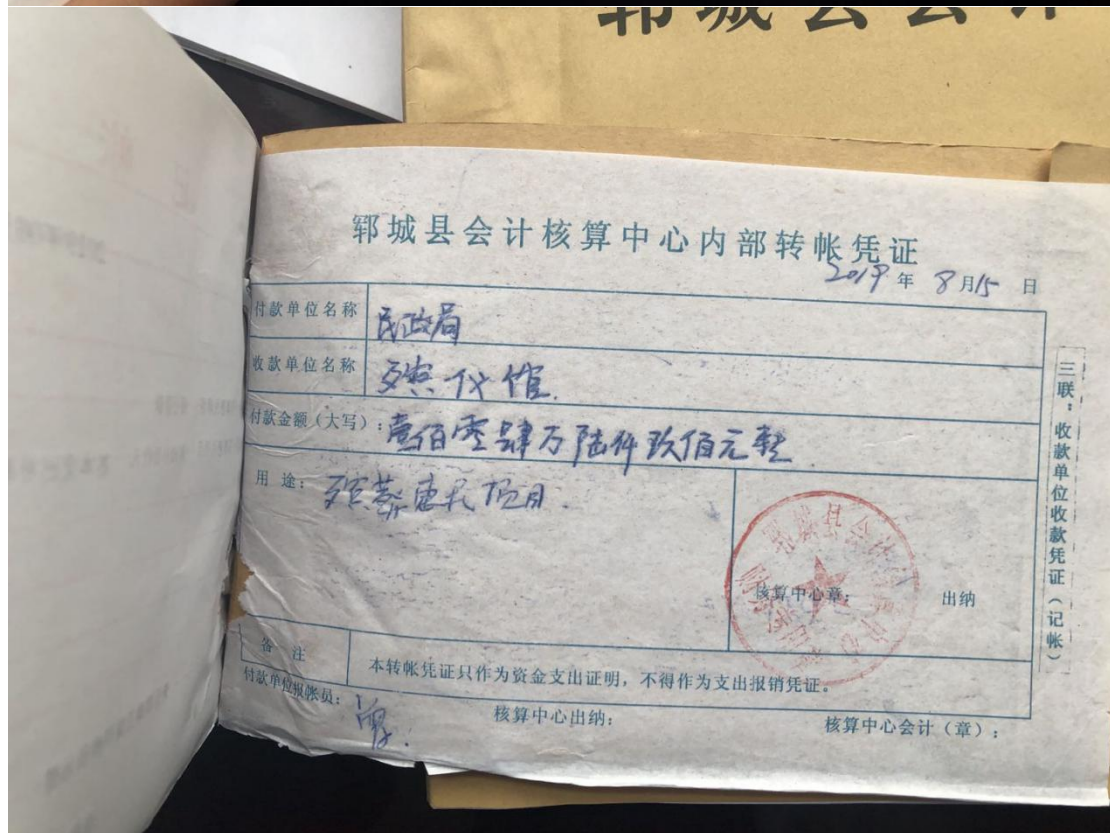 郓城县会计
郓城县会计核算中心内部转帐凭证
2019年8月15日
付款单位名称 民政局
收款单位名称 殡仪馆
付款金额（大写）：壹佰零肆万陆仟玖佰元整
用途：殡葬惠民项目
核算中心章： 出纳
备注 本转帐凭证只作为资金支出证明，不得作为支出报销凭证。
付款单位报帐员： 核算中心出纳： 核算中心会计（章）：
三联：收款单位收款凭证（记帐）